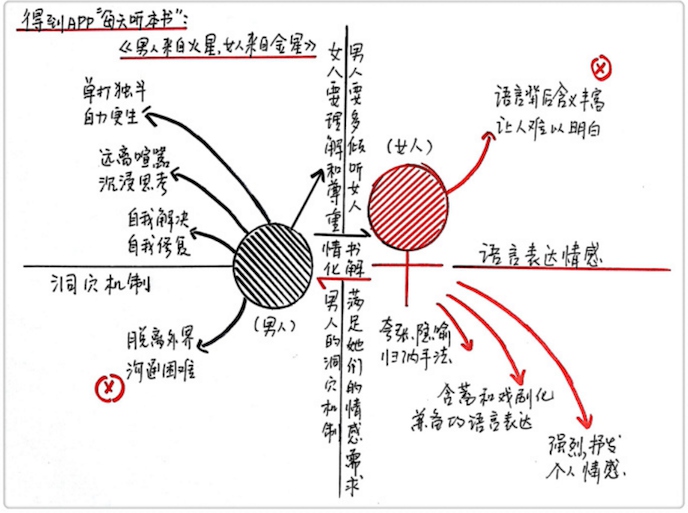 得到APP“每天听本书”:
《男人来自火星,女人来自金星》
单打独斗
自力更生
远离喧嚣
沉浸思考
自我解决
自我修复
洞穴机制
脱离外界
沟通困难
(男人)
男人要多倾听女人
女人要理解和尊重
情书
化解
满足她们的情感需求
男人的洞穴机制
(女人)
语言背后含义丰富
让人难以明白
语言表达情感
夸张、隐喻
归纳手法
含蓄和戏剧化
兼备的语言表达
强烈,抒发
个人情感.